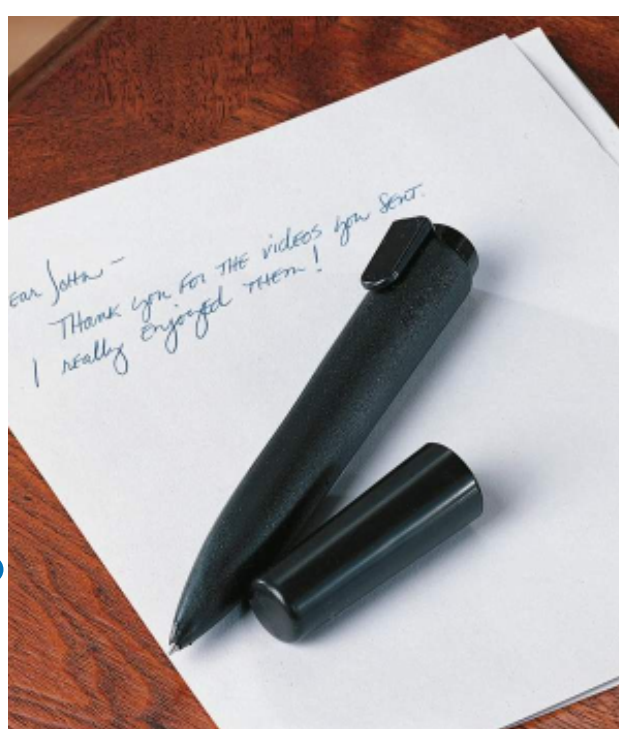 ear John –
Thank you for the videos you sent.
I really enjoyed them!